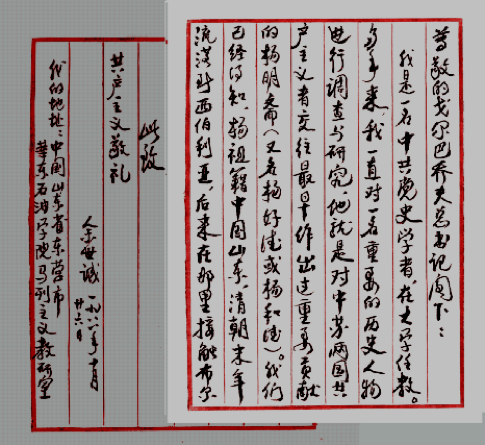 尊敬的戈尔巴乔夫总书记阁下：
我是一名中共党史学者，在大学任教。
多年来，我一直对一名重要的历史人物
进行调查与研究。他就是对中苏两国共
产主义者交往最早作出过重要贡献
的杨明斋（又名杨好德或杨和德）。我们
已经得知，杨祖籍中国山东，清朝末年
流落到西伯利亚，后来在那里接触布尔
此致
共产主义敬礼
余世诚 一九八六年十月
廿六日
我的地址：中国山东省东营市
华东石油学院马列主义教研室